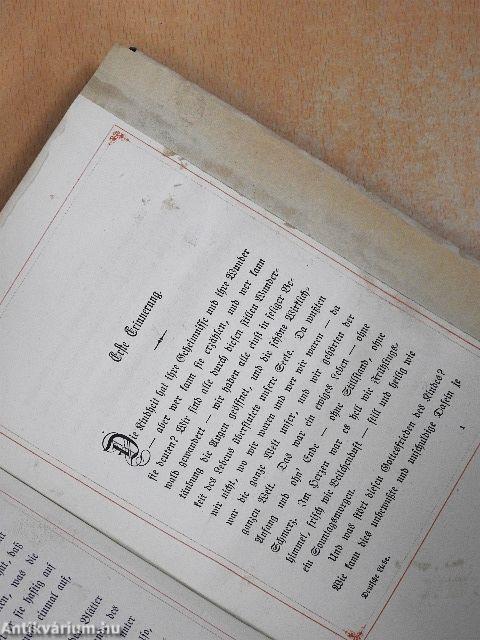 Erste Erinnerung.
Die Kindheit hat ihre Geheimnisse und ihre Wunder
— aber wer kann sie erzählen, und wer kann
sie deuten? Wir sind alle durch diesen stillen Wunder-
wald gewandert — wir haben alle einst in seliger Be-
täubung die Augen geöffnet, und die schöne Wirklich-
keit des Lebens überfluthete unsere Seele. Da wußten
wir nicht, wo wir waren und wer wir waren — da
war die ganze Welt unser, und wir gehörten der
ganzen Welt. Das war ein ewiges Leben — ohne
Anfang und ohn' Ende — ohne Stillstand, ohne
Schmerz. Im Herzen war es hell wie Frühlings-
himmel, frisch wie Veilchenduft — still und heilig wie
ein Sonntagsmorgen.
Und was stört diesen Gottesfrieden des Kindes?
Wie kann dies unbewußte und unschuldige Dasein je
Deutsche Liebe.
1
hat, daß
was die
sie hastig auf
einmal auf,
Blätter
des
so,
Antikvárium.hu